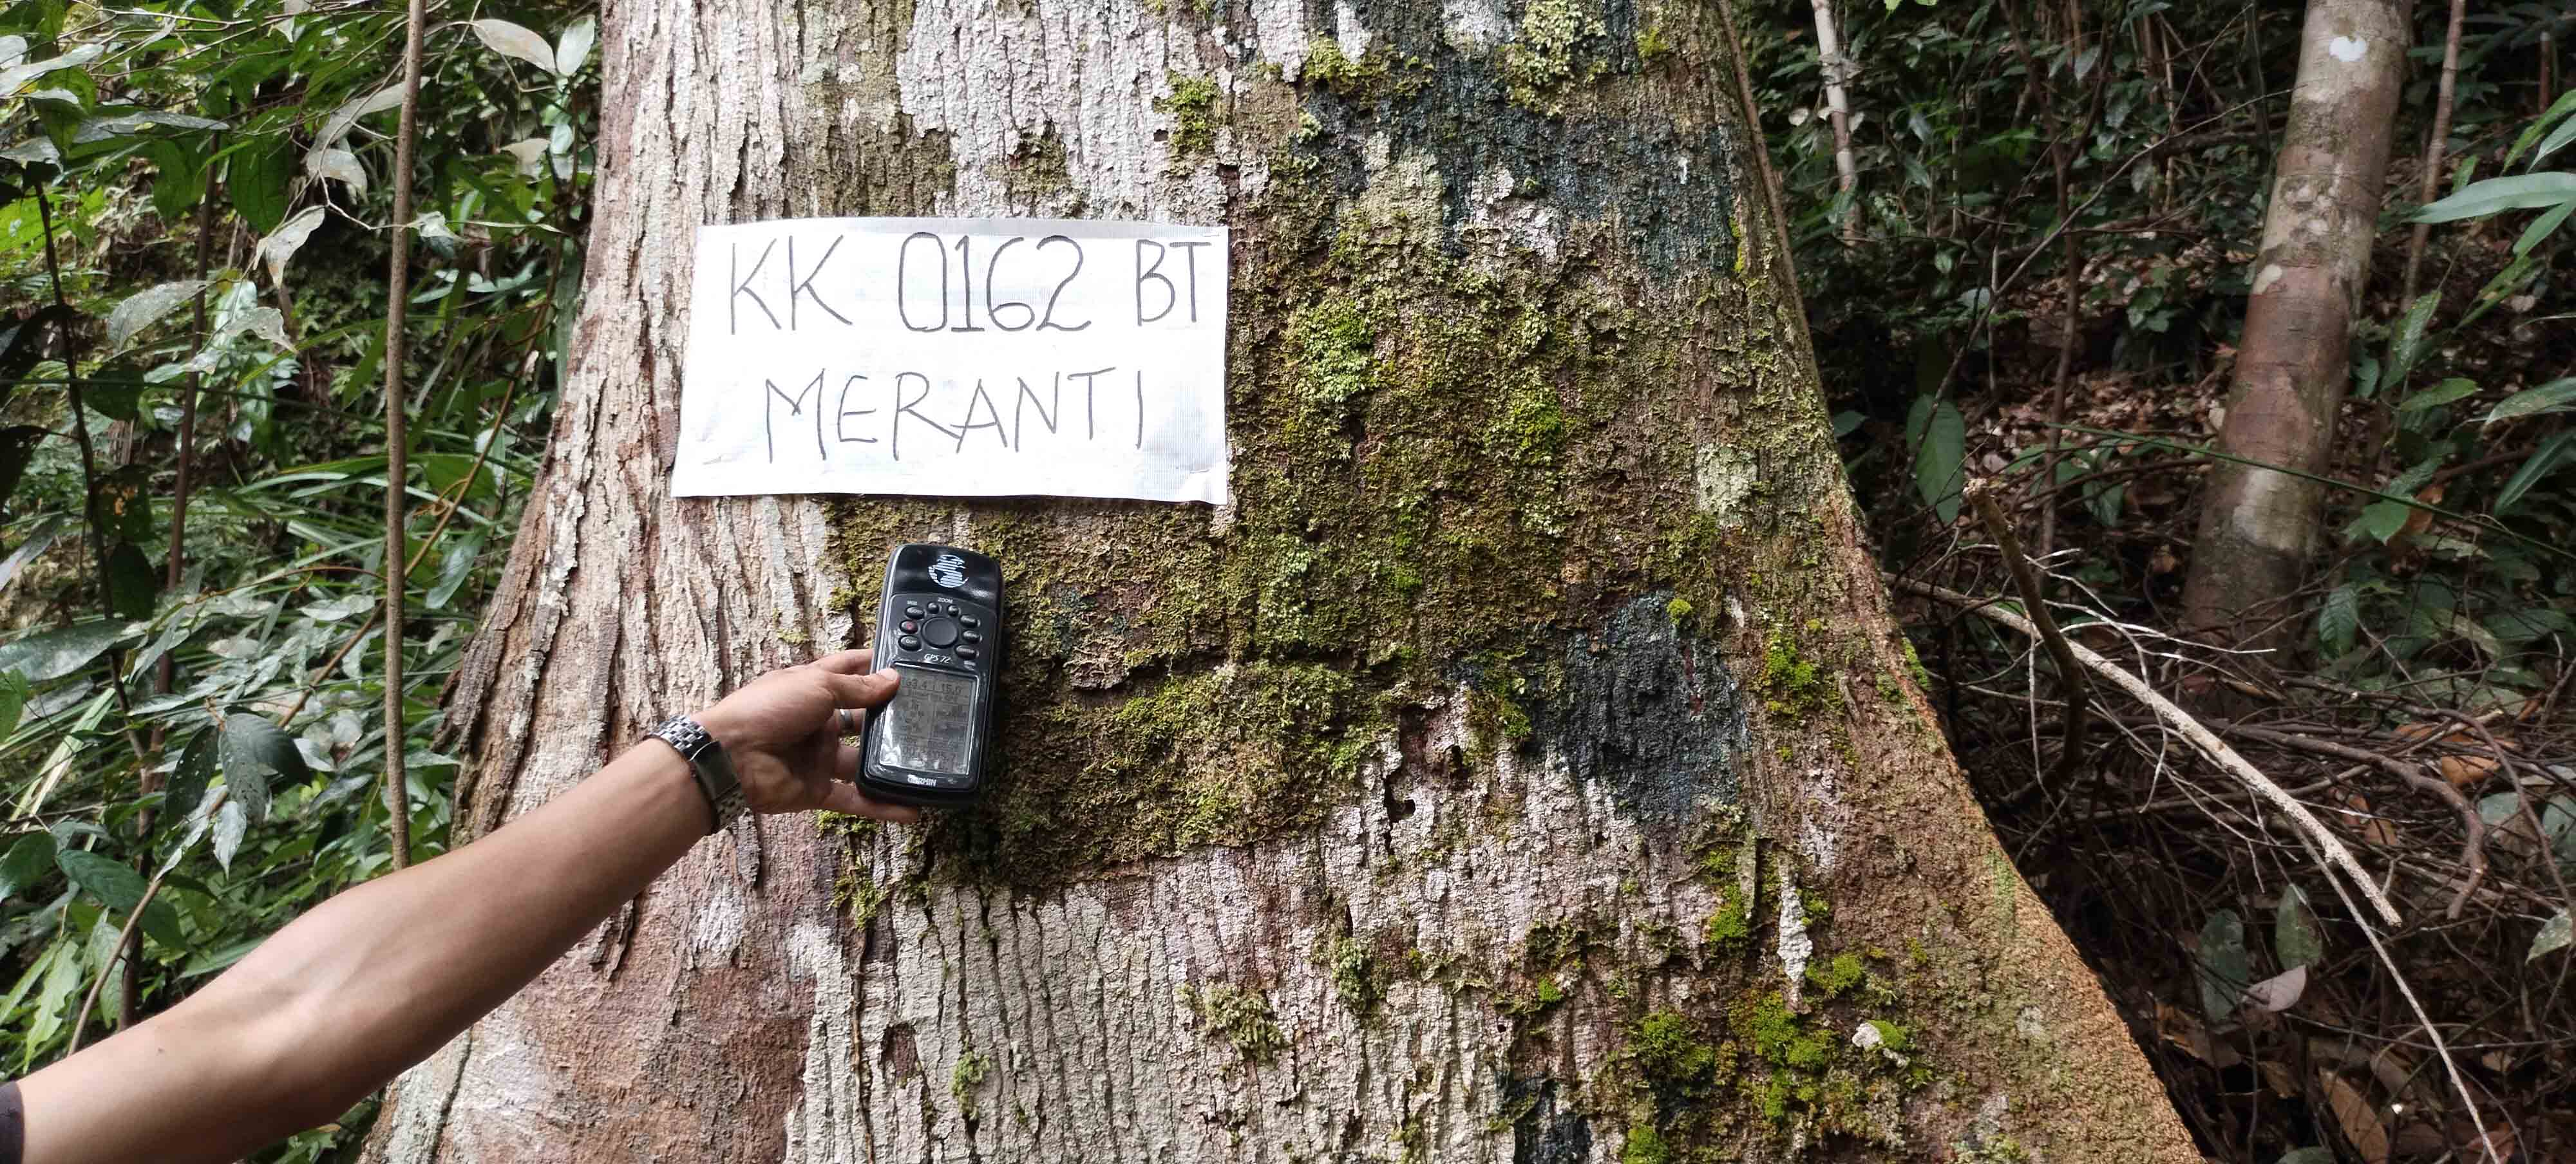 KK 0162 BT
MERANTI
ZOOM
GPS 72
GARMIN